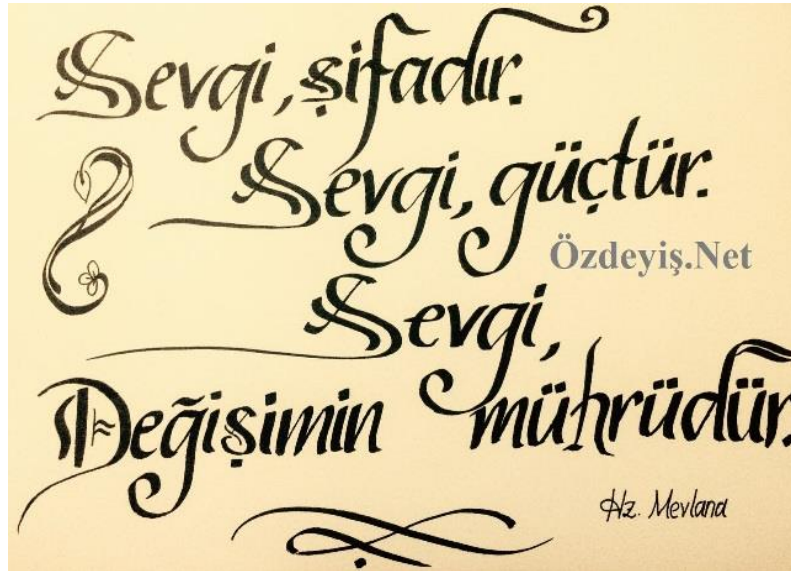 Sevgi, şifadır.
Sevgi, güçtür.
Özdeyiş.Net
Sevgi,
Değişimin mührüdür.
Hz. Mevlana